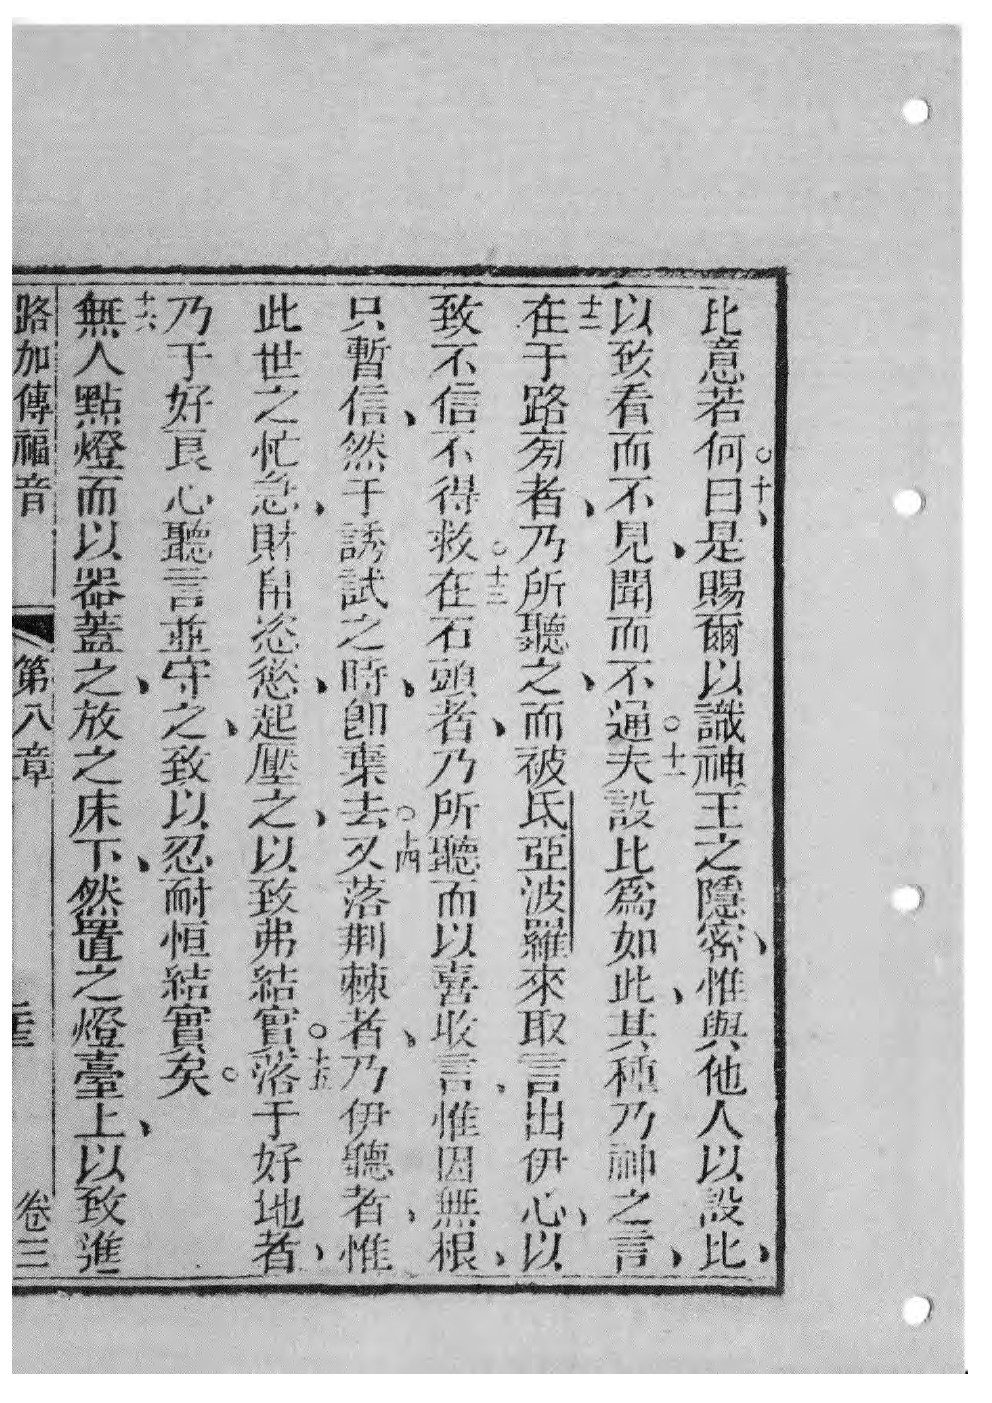 比意若何。十曰、是賜爾以識神王之隱密、惟與他人以設比、
以致看而不見、聞而不通。十一夫設比為如此、其種乃神之言、
十二在于路旁者、乃所聽之、而被氐亞波羅來取言出伊心、以
致不信不得救。十三在石頭者、乃所聽而以喜收言、惟因無根、
只暫信、然于誘試之時、卽棄去。十四又落荆棘者、乃伊聽者、惟
此世之忙急、財帛恣慾、起壓之、以致弗結實。十五落于好地者、
乃于好良心聽言並守之、致以忍耐恒結實矣。
十六無人點燈而以器蓋之、放之床下、然置之燈臺上、以致進
路加傳福音 第八章 卷三